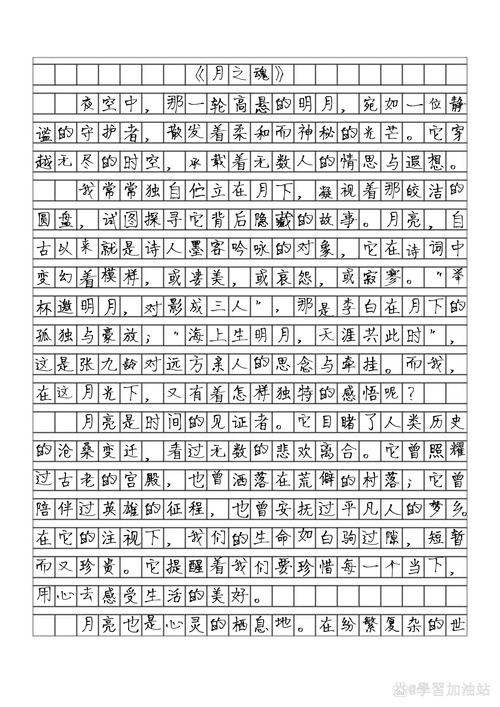 《月之魂》
夜空中，那一轮高悬的明月，宛如一位静
谧的守护者，散发着柔和而神秘的光芒。它穿
越无尽的时空，承载着无数人的情思与遐想。
我常常独自伫立在月下，凝视着那皎洁的
圆盘，试图探寻它背后隐藏的故事。月亮，自
古以来就是诗人墨客吟咏的对象，它在诗词中
变幻着模样，或凄美，或哀怨，或寂寥。“举
杯邀明月，对影成三人”，那是李白在月下的
孤独与豪放；“海上生明月，天涯共此时”，
这是张九龄对远方亲人的思念与牵挂。而我，
在这月光下，又有着怎样独特的感悟呢？
月亮是时间的见证者。它目睹了人类历史
的沧桑变迁，看过无数的悲欢离合。它曾照耀
过古老的宫殿，也曾洒落在荒僻的村落；它曾
陪伴过英雄的征程，也曾安抚过平凡人的梦乡。
在它的注视下，我们的生命如白驹过隙，短暂
而又珍贵。它提醒着我们要珍惜每一个当下，
用心去感受生活的美好。
月亮也是心灵的栖息地。在纷繁复杂的世
@學習加油站